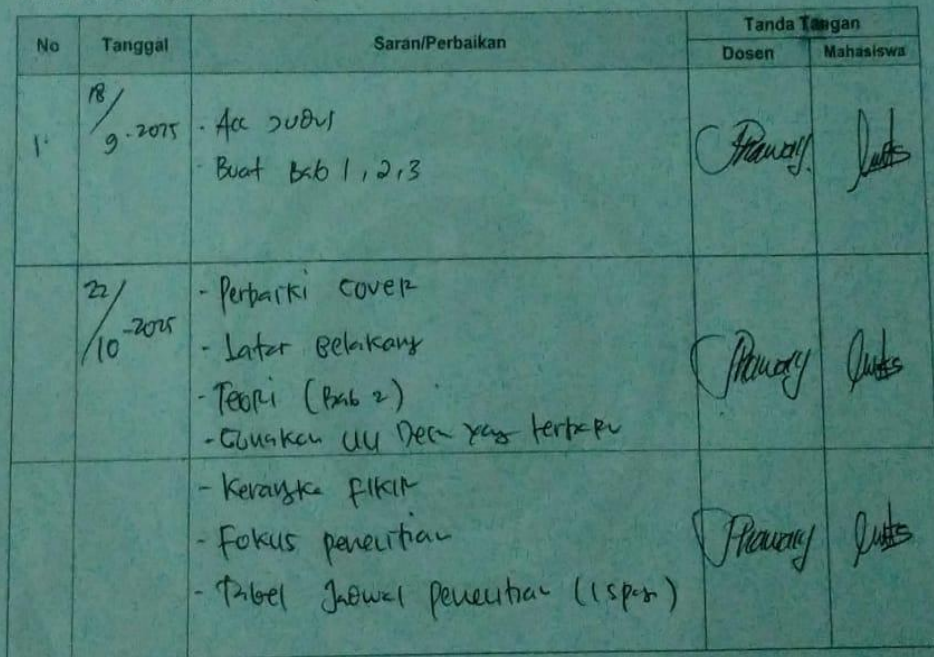 No Tanggal Saran/Perbaikan Tanda Tangan
Dosen Mahasiswa
1. 18/9-2025 - Acc Judul
- Buat Bab 1, 2, 3
22/10-2025 - Perbaiki cover
- Latar Belakang
- Teori (Bab 2)
- Gunakan UU Desa yang terbaru
- Kerangka Fikir
- Fokus penelitian
- Tabel Jadwal penelitian (1 spasi)